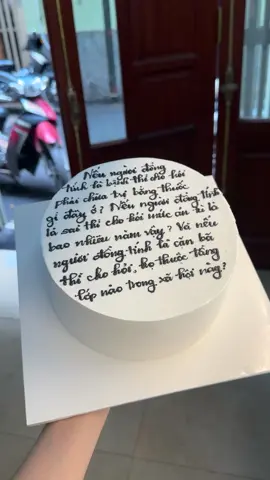 Nếu người đồng
tính là bệnh thì cho hỏi
phải chữa trị bằng thuốc
gì đây ạ? Nếu người đồng tính
là sai thì cho hỏi mức án tù là
bao nhiêu năm vậy? Và nếu
người đồng tính là cặn bã
thì cho hỏi, họ thuộc tầng
lớp nào trong xã hội này?